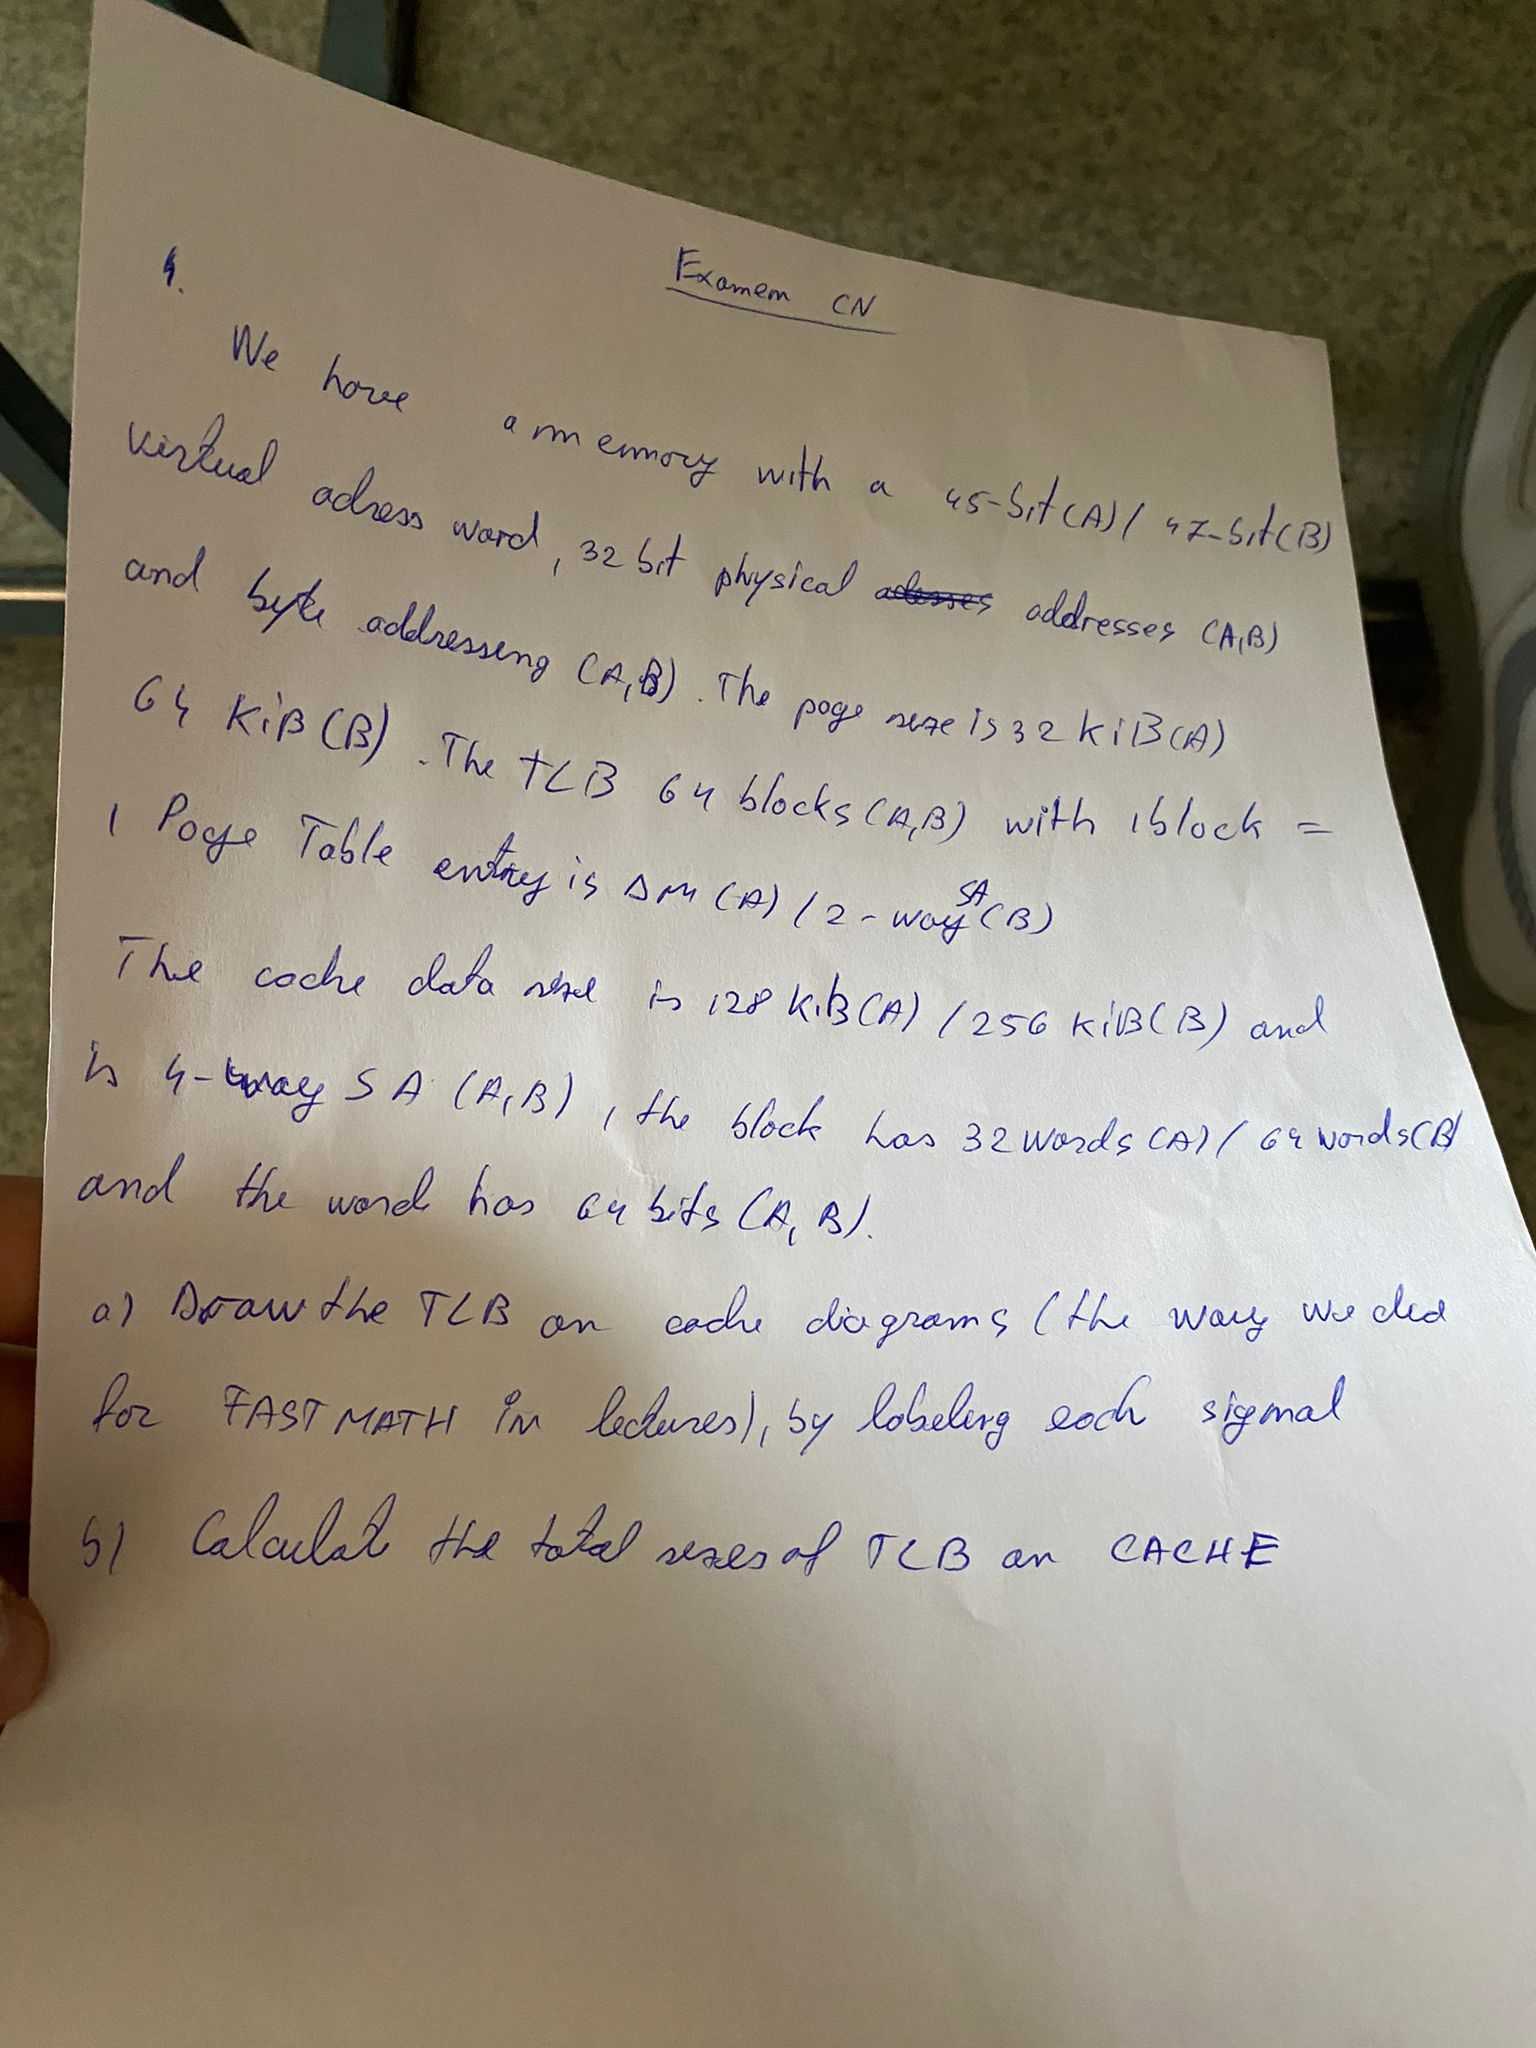 1.
Examen CN
We have a memory with a 45-bit(A)/ 47-bit(B)
virtual adress word, 32 bit physical addresses (A,B)
and byte addressing (A,B). The page size is 32 KiB(A)
64 KiB (B). The TLB 64 blocks (A,B) with 1 block =
1 Page Table entry is DM (A) / 2-way SA (B)
The cache data size is 128 KiB(A) / 256 KiB(B) and
is 4-way SA (A,B), the block has 32 words (A) / 64 words(B)
and the word has 64 bits (A, B).
a) Draw the TLB an cache diagrams (the way we did
for FASTMATH in lectures), by labeling each signal
b) Calculate the total sizes of TLB an CACHE